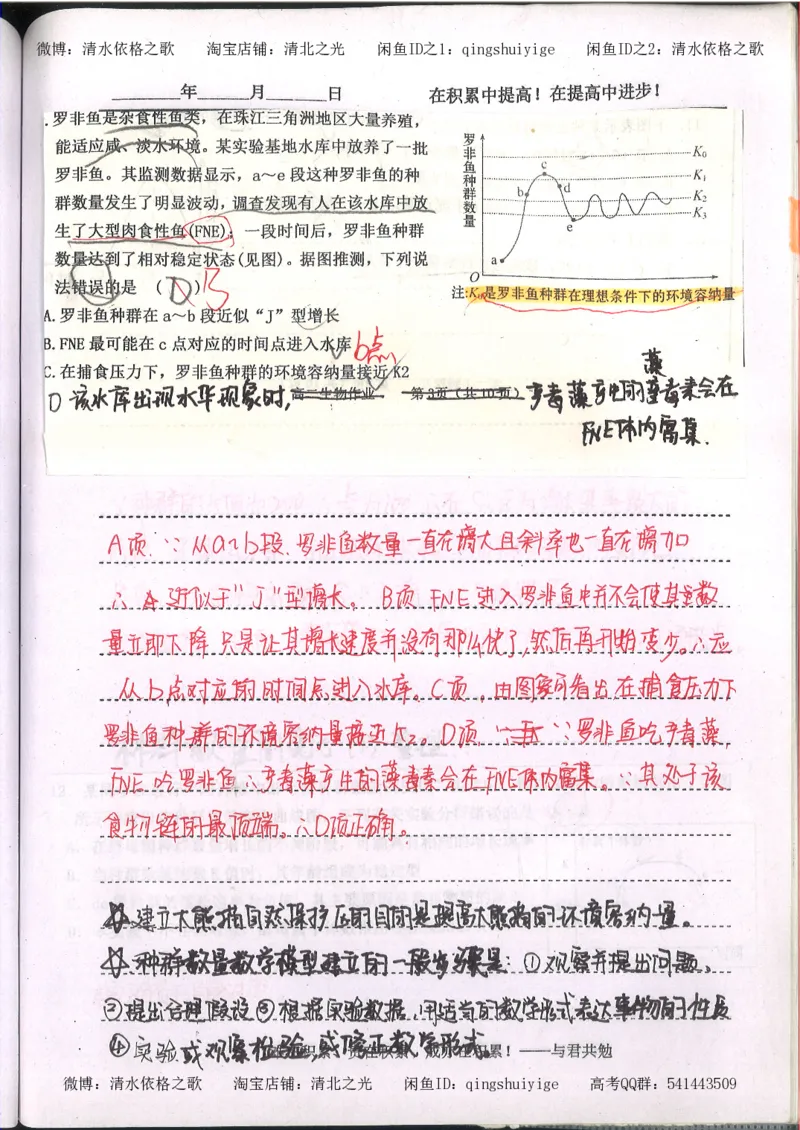 微博：清水依格之歌 淘宝店铺：清北之光 闲鱼ID之1：qingshuiyige 闲鱼ID之2：清水依格之歌
______年______月______日 在积累中提高！在提高中进步！
.罗非鱼是杂食性鱼类，在珠江三角洲地区大量养殖，
能适应咸、淡水环境。某实验基地水库中放养了一批
罗非鱼。其监测数据显示，a～e段这种罗非鱼的种
群数量发生了明显波动，调查发现有人在该水库中放
生了大型肉食性鱼(FNE)；一段时间后，罗非鱼种群
数量达到了相对稳定状态(见图)。据图推测，下列说
法错误的是 （ D ）B
罗非鱼种群数量
K0
K1
K2
K3
a
b
c
d
e
O
注:K0是罗非鱼种群在理想条件下的环境容纳量
A.罗非鱼种群在a～b段近似“J”型增长
B.FNE最可能在c点对应的时间点进入水库 b点
C.在捕食压力下，罗非鱼种群的环境容纳量接近K2
藻
D 该水库出现水华现象时, 高二生物作业 第3页（共10页） 产毒藻产生的藻毒素会在
FNE体内富集.
A项.∵从a~b段.罗非鱼数量一直在增大且斜率也一直在增加
∴近似于"J"型增长。B项 FNE进入罗非鱼中并不会使其数
量立即下降 只是让其增长速度并没有那么快了,然后再开始变少。∴应
从b点对应的时间点进入水库。C项,由图象可看出在捕食压力下
罗非鱼种群的环境容纳量接近K2。D项 ∵罗非鱼吃产毒藻,
FNE吃罗非鱼∴产毒藻产生的藻毒素会在FNE体内富集。∵其处于该
食物链的最顶端。∴D项正确。
建立大熊猫自然保护区的目的是提高大熊猫的环境容纳量。
种群数量数学模型建立的一般步骤是：①观察并提出问题、
②提出合理假设③根据实验数据,用适当的数学形式表达事物的性质
④实验或观察检验,或修正数学形式。 积累！——与君共勉
微博：清水依格之歌 淘宝店铺：清北之光 闲鱼ID：qingshuiyige 高考QQ群：541443509